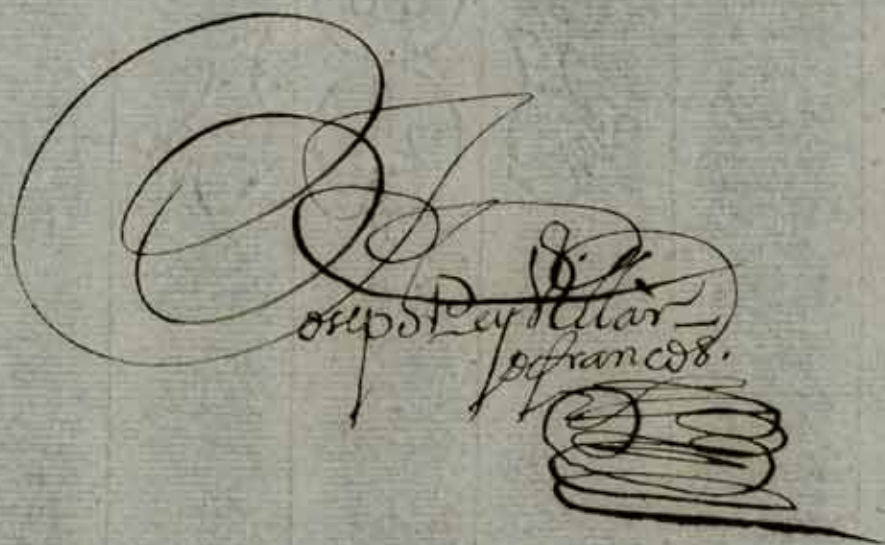 Joseph Rey Villar
de francos.